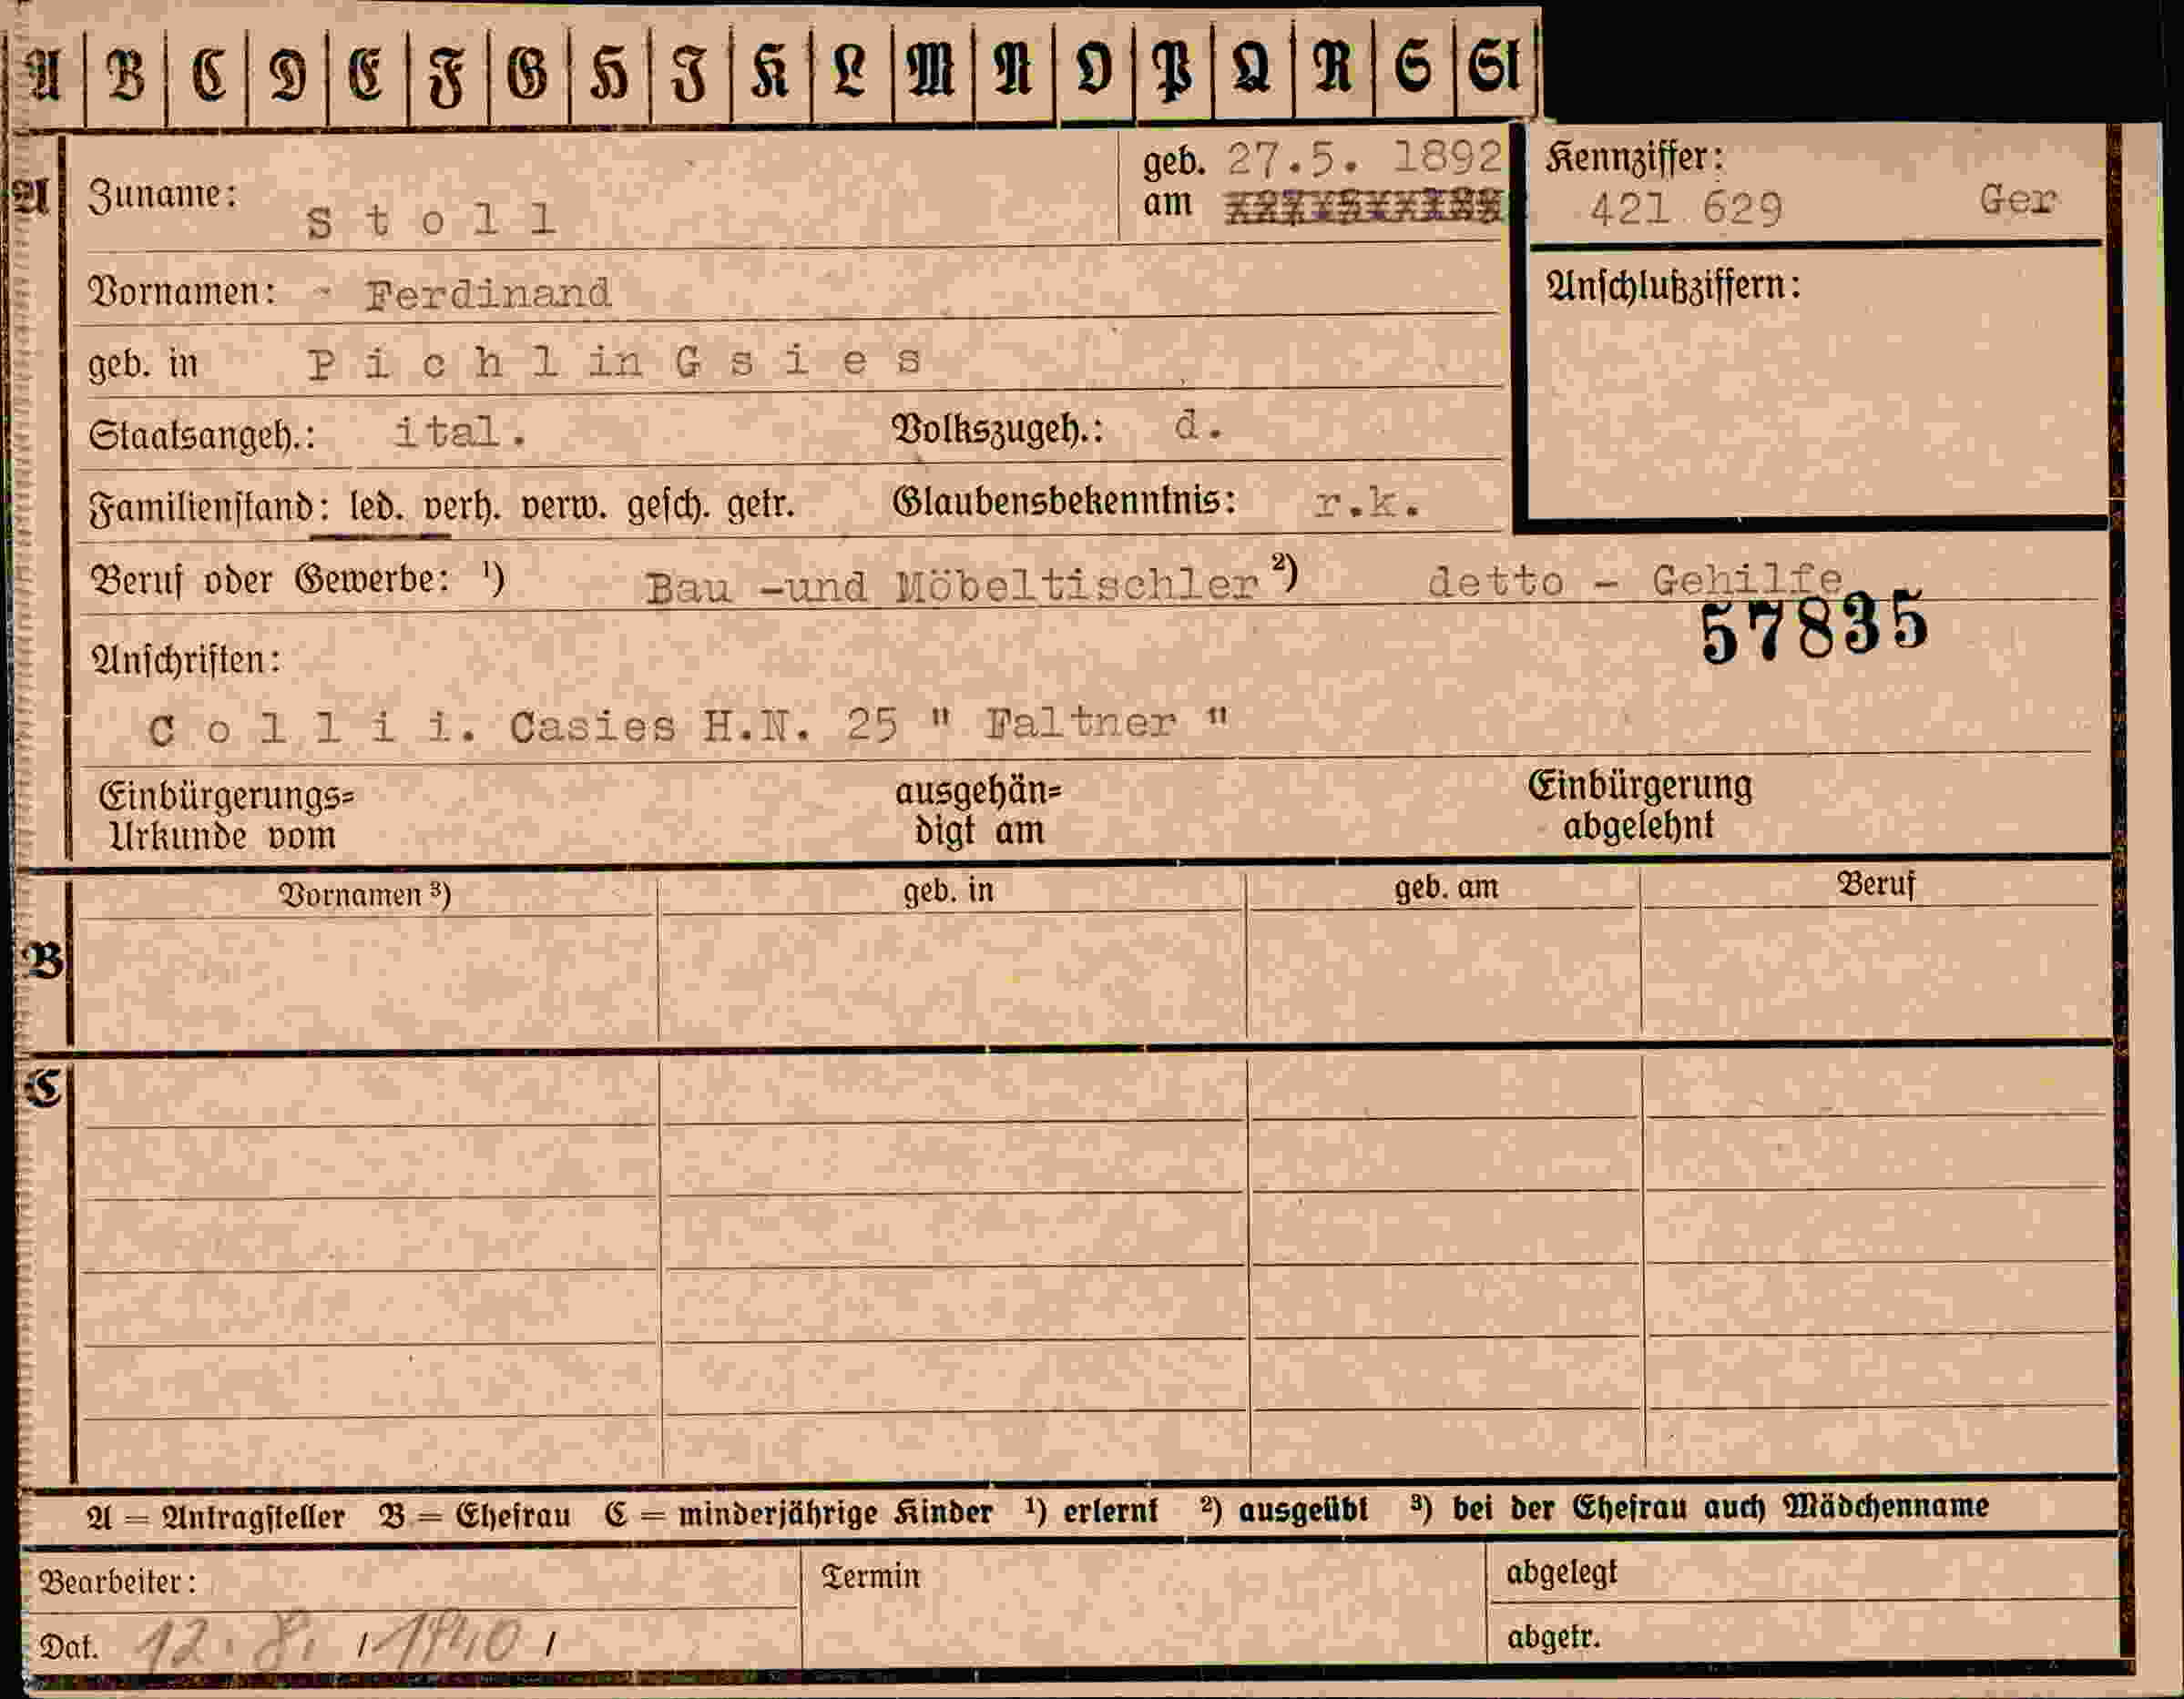 A B C D E F G H I K L M N O P Q R S St
A Zuname: S t o l l geb. am 27.5. 1892
Kennziffer: 421 629 Ger
Vornamen: - Ferdinand
Anschlußziffern:
geb. in P i c h l in G s i e s
Staatsangeh.: ital. Volkszugeh.: d.
Familienstand: led. verh. verw. gesch. getr. Glaubensbekenntnis: r.k.
Beruf oder Gewerbe: ¹) Bau -und Möbeltischler ²) detto - Gehilfe
57835
Anschriften:
C o l l i i. Casies H.N. 25 " Faltner "
Einbürgerungs= ausgehän= Einbürgerung
Urkunde vom digt am abgelehnt
Vornamen ³) geb. in geb. am Beruf
B
C
A = Antragsteller B = Ehefrau C = minderjährige Kinder ¹) erlernt ²) ausgeübt ³) bei der Ehefrau auch Mädchenname
Bearbeiter: Termin abgelegt
Dat. 12. 8. 1940 abgetr.